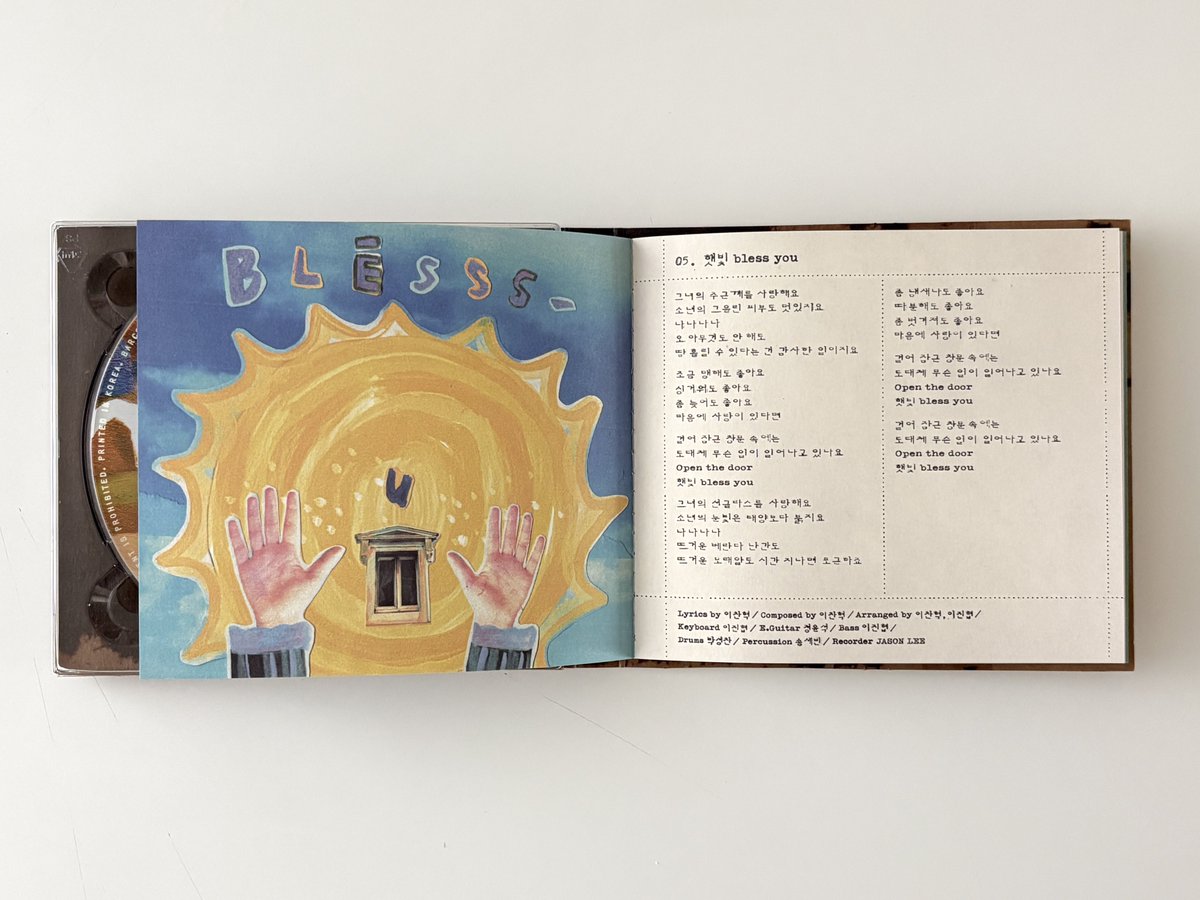 BLESSS.
U
83
Kims
PROHIBITED. PRINTED IN KOREA.
05. 햇빛 bless you
그녀의 주근깨를 사랑해요
소년의 그을린 피부도 멋있지요
나나나나
오 아무것도 안 해도
땀 흘릴 수 있다는 건 감사한 일이지요
조금 땡해도 좋아요
싱거워도 좋아요
좀 늦어도 좋아요
마음에 사랑이 있다면
걸어 잠근 창문 속에는
도대체 무슨 일이 일어나고 있나요
Open the door
햇빛 bless you
그녀의 선글라스를 사랑해요
소년의 눈빛은 태양보다 붉지요
나나나나
뜨거운 베란다 난간도
뜨거운 노태양도 시간 지나면 포근하죠
좀 냄새나도 좋아요
따분해도 좋아요
좀 벗겨져도 좋아요
마음에 사랑이 있다면
걸어 잠근 창문 속에는
도대체 무슨 일이 일어나고 있나요
Open the door
햇빛 bless you
걸어 잠근 창문 속에는
도대체 무슨 일이 일어나고 있나요
Open the door
햇빛 bless you
Lyrics by 이찬혁 / Composed by 이찬혁 / Arranged by 이찬혁, 이진협 /
Keyboard 이진협 / E.Guitar 정용석 / Bass 이진협 /
Drums 박성찬 / Percussion 송세빈 / Recorder JASON LEE